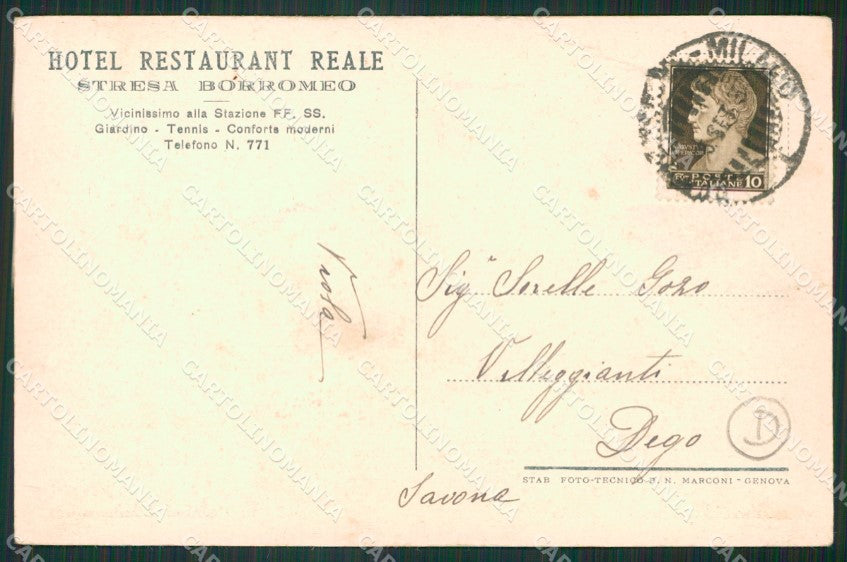 HOTEL RESTAURANT REALE
STRESA BORROMEO
Vicinissimo alla Stazione FF. SS.
Giardino - Tennis - Conforts moderni
Telefono N. 771
MILANO
POSTE
ITALIANE 10
Viola
Sigʳ Sorelle Gozo
Villeggianti
Dego
D
Savona
STAB FOTO-TECNICO B. N. MARCONI - GENOVA
CARTOLINOMANIA